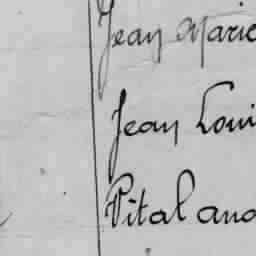 Jean Marie
Jean Loui
Vital and